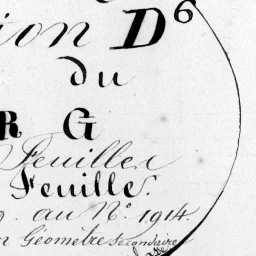 ion D6
du
R G
Feuilles
Feuille.
au No. 1914.
Géomètre Secondaire